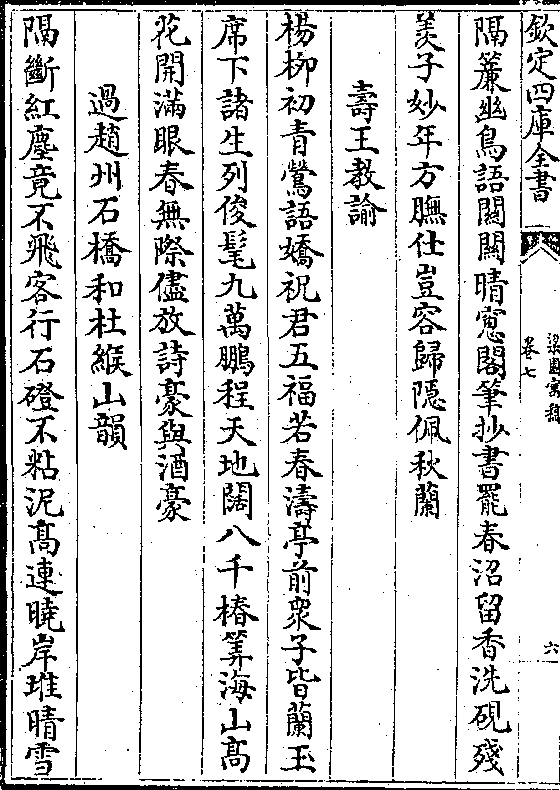 欽定四庫全書
梁園寓稿
卷七
六
隔簾幽鳥語闗闗晴窻閣筆抄書罷春沼留香洗硯殘
羡子妙年方膴仕豈容歸隱佩秋蘭
壽王教諭
楊柳初青鶯語嬌祝君五福若春濤亭前衆子皆蘭玉
席下諸生列俊髦九萬鵬程天地闊八千椿筭海山髙
花開滿眼春無際儘放詩豪與酒豪
過趙州石橋和杜緱山韻
隔斷紅塵竟不飛客行石磴不粘泥髙連曉岸堆晴雪